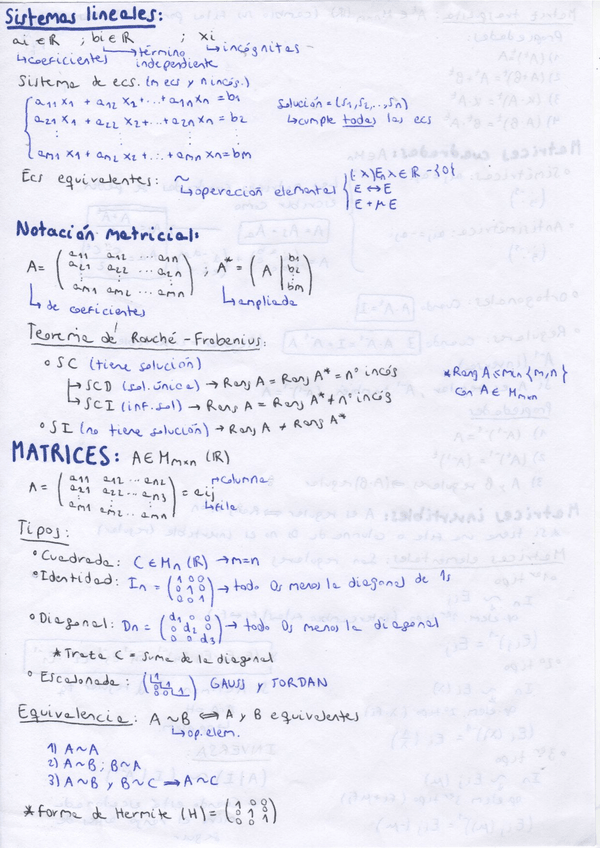 Sistemas lineales:
ai ∈ ℝ ; bi ∈ ℝ ; xi
↳ coeficientes ↳ término independiente ↳ incógnitas
Sistema de ecs. (m ecs y n incós.)
a11 x1 + a12 x2 + ... + a1n xn = b1
a21 x1 + a22 x2 + ... + a2n xn = b2
⋮ ⋮ ⋮
am1 x1 + am2 x2 + ... + amn xn = bm
Solución = (s1, s2, .., sn)
↳ cumple todas las ecs
Ecs equivalentes: ~
↳ operación elemental
(·λ)E, λ ∈ ℝ - {0}
E ↔ E
E + μE
Notación matricial:
A = ( a11 a12 ... a1n
a21 a22 ... a2n
⋮
am1 am2 ... amn ) ; A* = ( A | b1
b2
⋮
bm )
↳ de coeficientes ↳ ampliada
Teorema de Rouché - Frobenius:
◦ SC (tiene solución)
↳ SCD (sol. única) → Rang A = Rang A* = nº incós
↳ SCI (inf. sol) → Rang A = Rang A* ≠ nº incós
◦ SI (no tiene solución) → Rang A ≠ Rang A*
* Rang A ≤ min {m,n}
con A ∈ Mmxn
MATRICES: A ∈ Mmxn (ℝ)
A = ( a11 a12 ... an2
a21 a22 ... an3
⋮
am1 am2 ... amn ) = aij
↱ columna
↳ fila
Tipos:
◦ Cuadrada: C ∈ Mn (ℝ) → m=n
◦ Identidad: In = ( 1 0 0
0 1 0
0 0 1 ) → todo 0s menos la diagonal de 1s
◦ Diagonal: Dn = ( d1 0 0
0 d2 0
0 0 d3 ) → todo 0s menos la diagonal
* Traza C = suma de la diagonal
◦ Escalonada: GAUSS y JORDAN
Equivalencia: A ~ B ⟺ A y B equivalentes
↳ op. elem.
1) A ~ A
2) A ~ B ; B ~ A
3) A ~ B y B ~ C ⟹ A ~ C
* Forma de Hermite (H) = ( 1 0 0
0 1 0
0 0 1 )